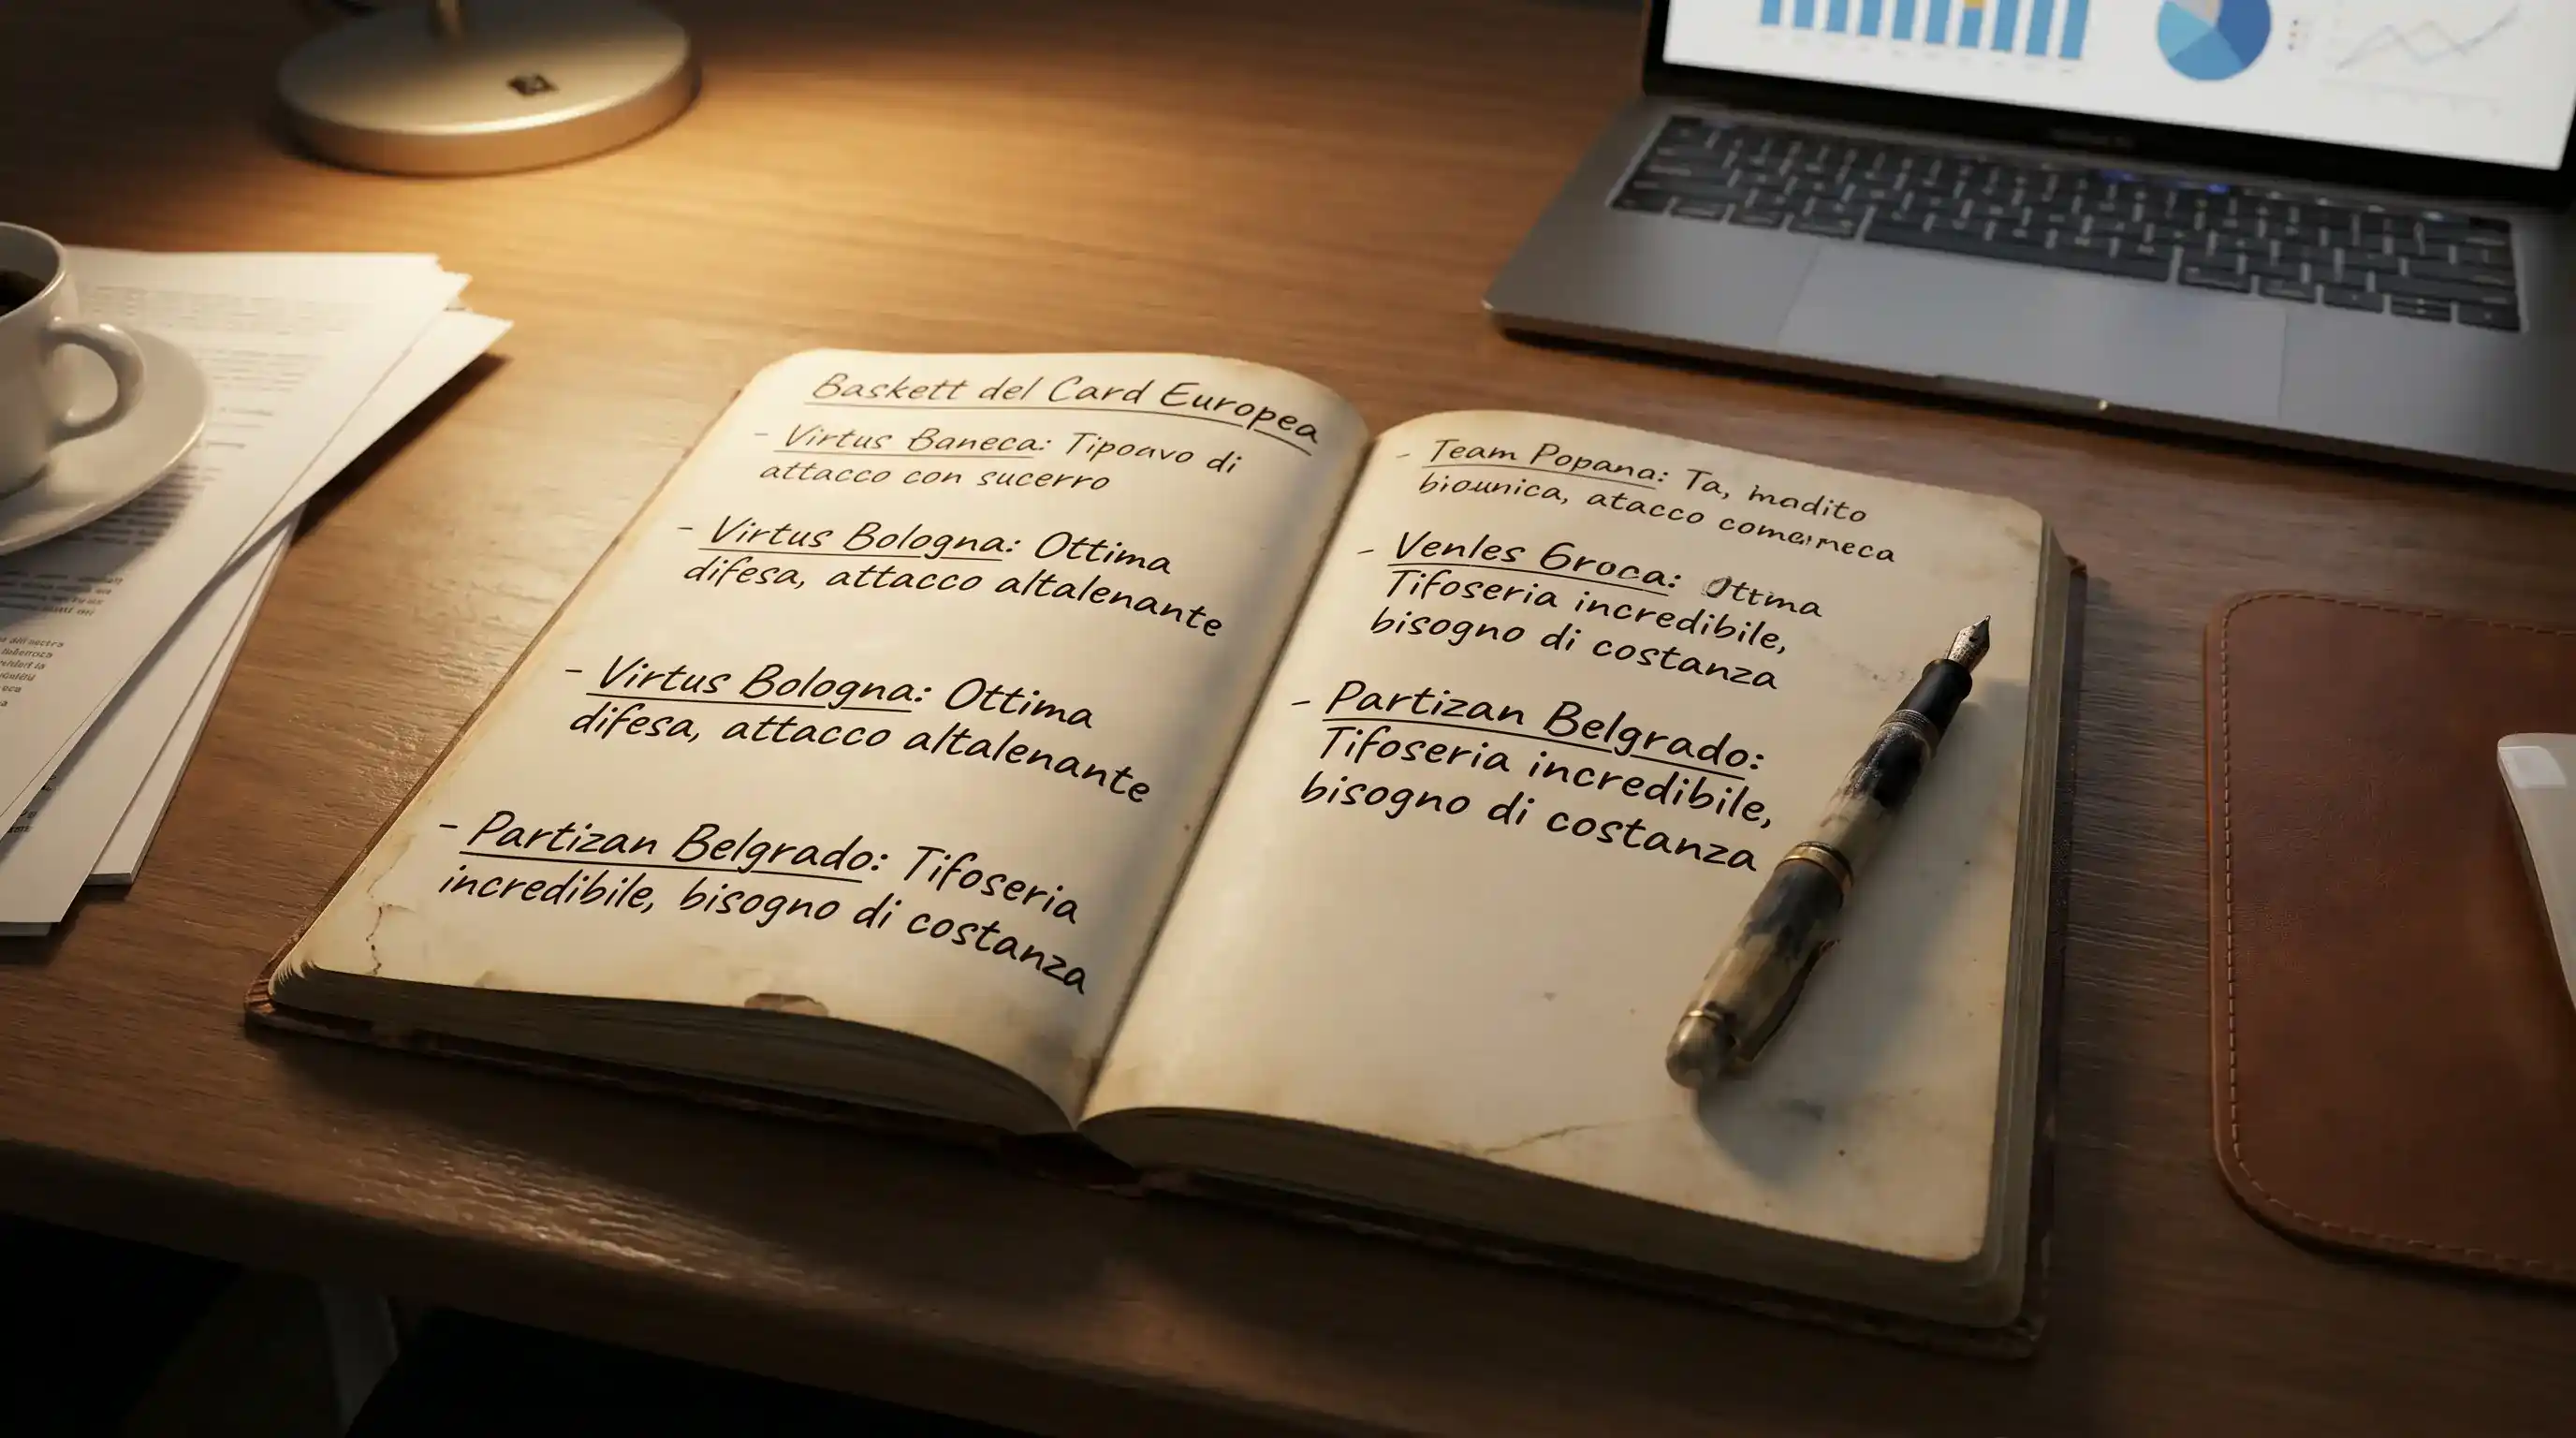 Baskett del Card Europea
- Virtus Baneca: Tipoavo di
attacco con sucerro
- Virtus Bologna: Ottima
difesa, attacco altalenante
- Virtus Bologna: Ottima
difesa, attacco altalenante
- Partizan Belgrado: Tifoseria
incredibile, bisogno di costanza
- Team Popana: Ta, inadito
biounica, atacco
- Venles Groca: Ottma
Tifoseria incredibile,
bisogno di costanza
- Partizan Belgrado:
Tifoseria incredibile,
bisogno di costanza